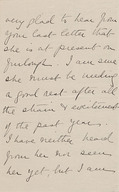 very glad to hear from
your last letter that
she is at present on
furlough. I am sure
she must be needing
a good rest after all
the strain & excitement
of the past year.
I have neither heard
from her nor seen
her yet, but I am